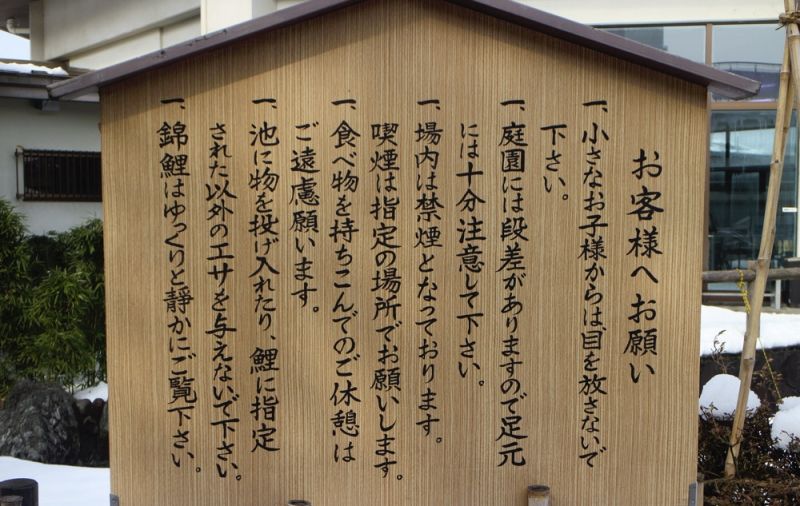 お客様へお願い
一、小さなお子様からは、目を放さないで
下さい。
一、庭園には段差がありますので足元
には十分注意して下さい。
一、場内は禁煙となっております。
喫煙は指定の場所でお願いします。
一、食べ物を持ちこんでのご休憩は
ご遠慮願います。
一、池に物を投げ入れたり、鯉に指定
された以外のエサを与えないで下さい。
一、錦鯉はゆっくりと静かにご覧下さい。